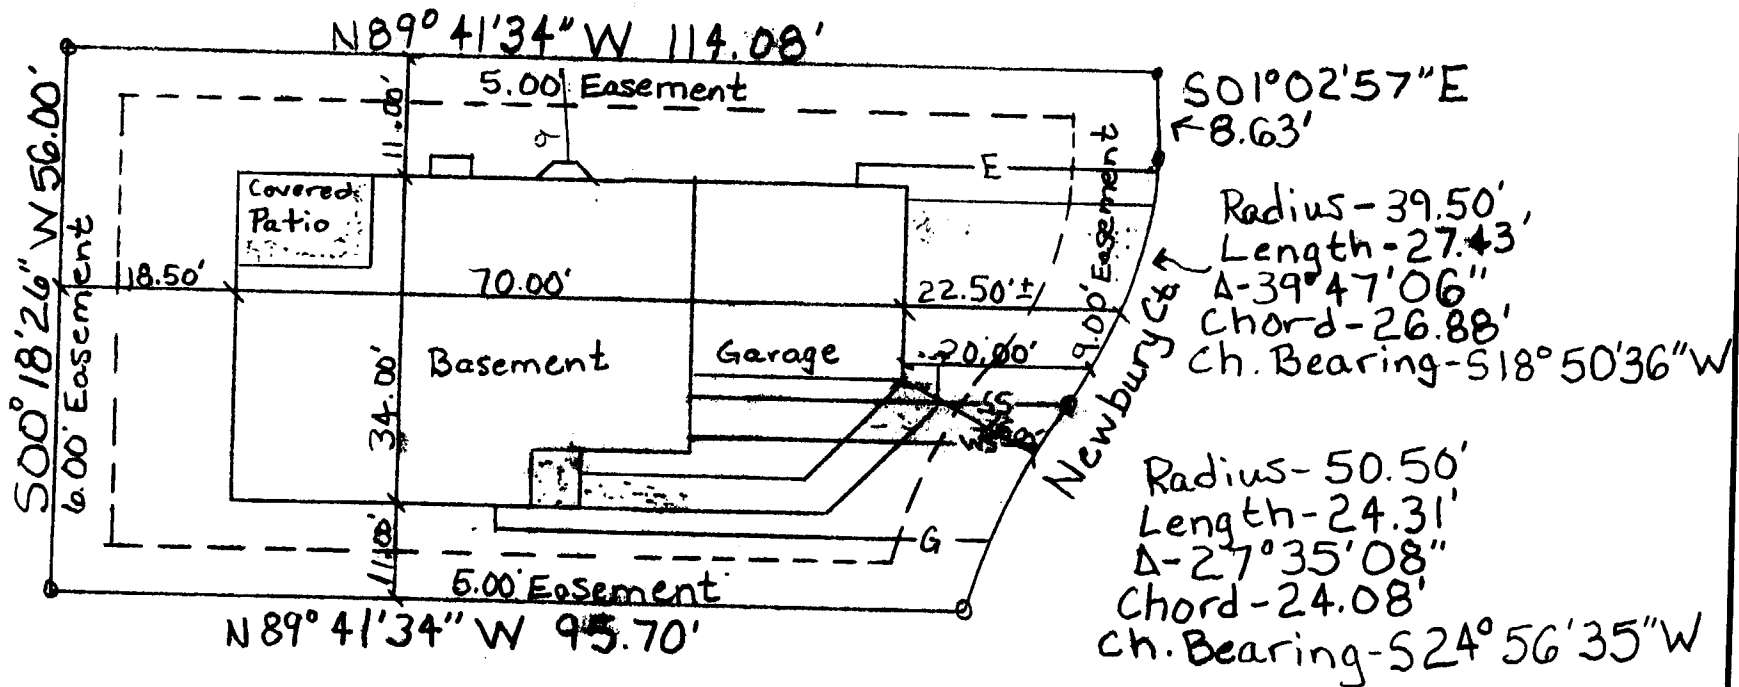 N89° 41'34" W 114.08'
5.00' Easement
S01°02'57"E
8.63'
S00°18'26" W 56.00'
6.00' Easement
11.00'
E
9.00' Easement
Covered
Patio
Radius-39.50'
Length-27.43'
Δ-39°47'06"
Chord-26.88'
Ch. Bearing-S18°50'36"W
18.50'
70.00'
22.50'±
Basement
Garage
20.00'
34.00'
SS
W
Newbury Ct.
Radius-50.50'
Length-24.31'
Δ-27°35'08"
Chord-24.08'
Ch. Bearing-S24°56'35"W
G
11.00'
5.00' Easement
N89° 41'34" W 95.70'